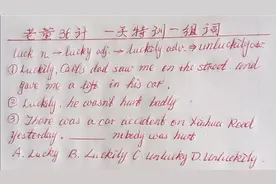 老董36计 一天特训一组词
luck n. → lucky adj. → luckily adv. → unluckily adv.
① Luckily, Carl's dad saw me on the street and
gave me a lift in his car.
② Luckily, he wasn't hurt badly.
③ There was a car accident on Xinhua Road
yesterday. ________ nobody was hurt
A. Lucky B. Luckily C. unlucky D. Unluckily.